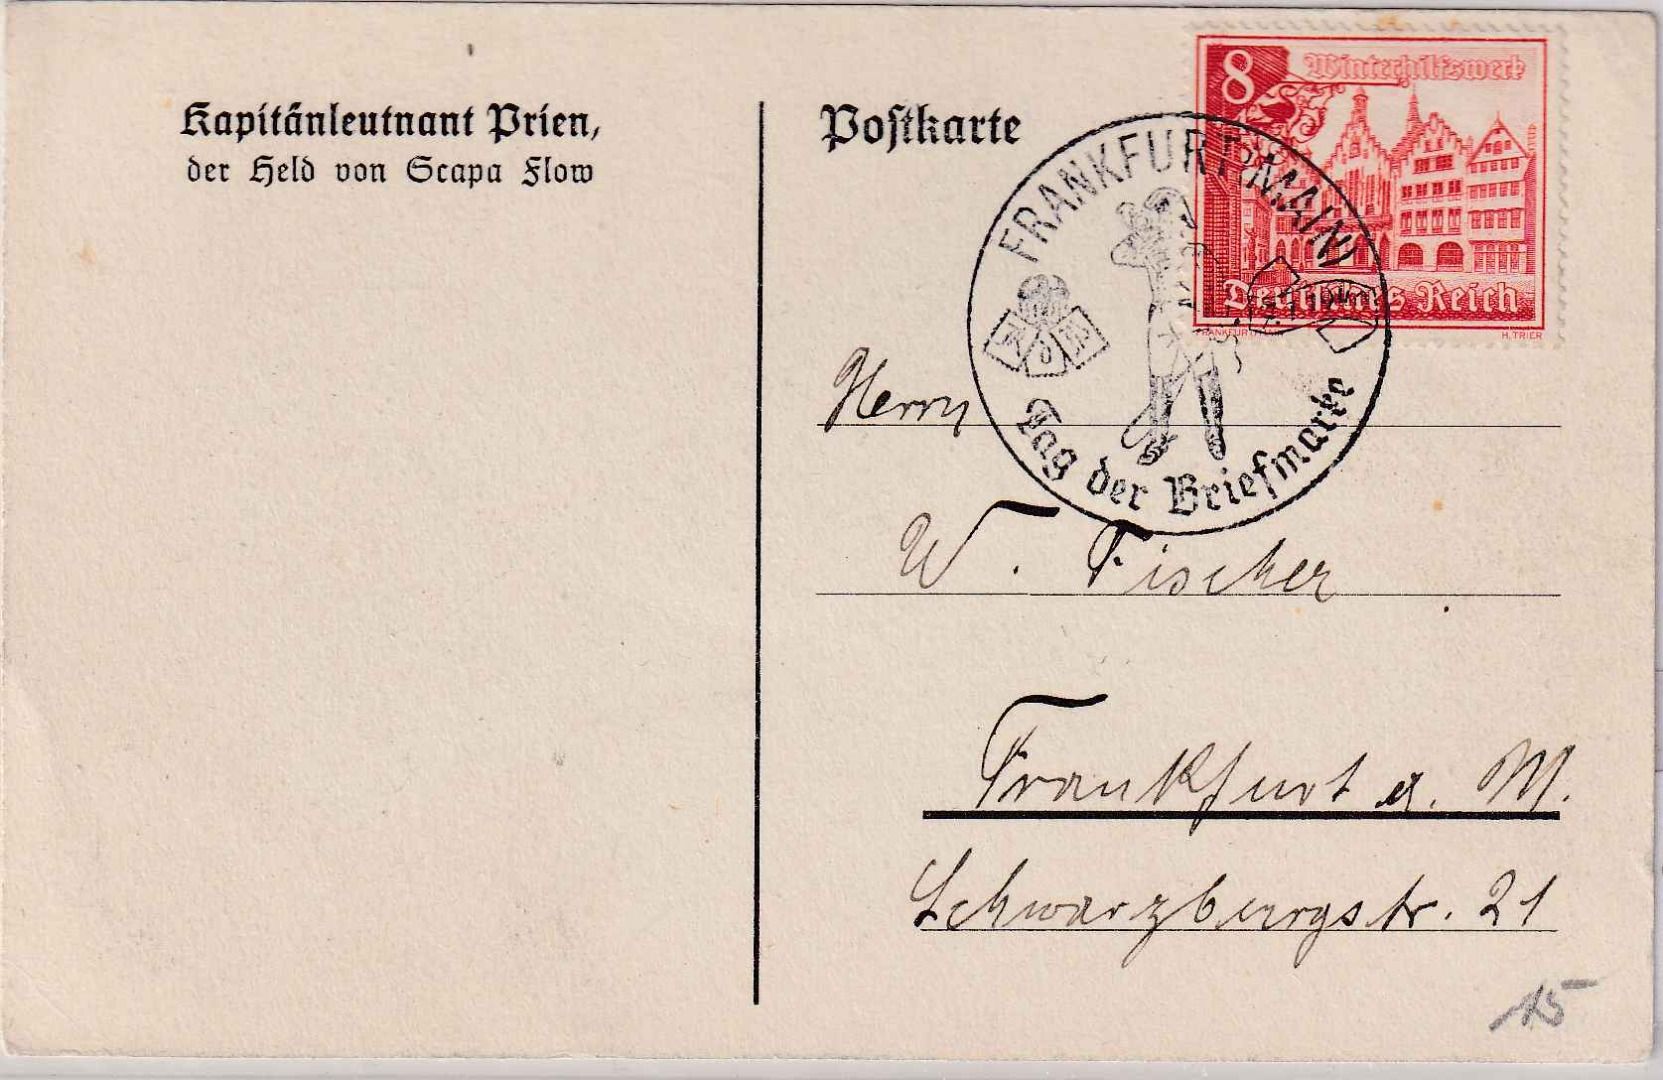 Kapitänleutnant Prien,
der Held von Scapa Flow
Postkarte
8 Winterhilfswerk
Deutsches Reich
FRANKFURT H. TRIER
FRANKFURT (MAIN)
K d F
Tag der Briefmarke
Herrn
W. Fischer
Frankfurt a. M.
Schwarzburgstr. 21
15